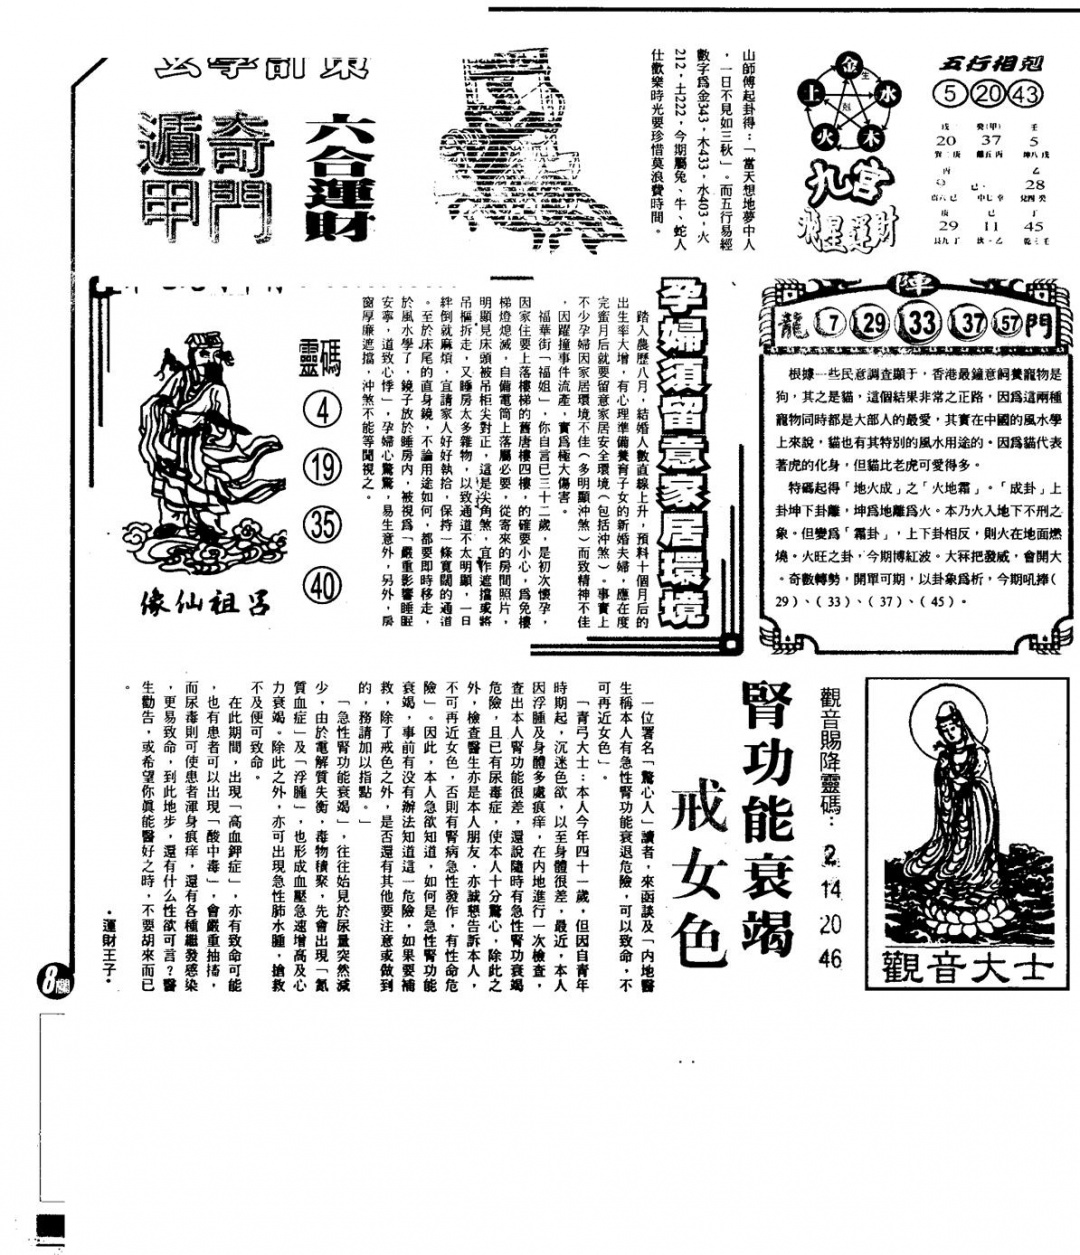 奇門
遁甲
六合運財
山師傅起卦得：「當天想地夢中人
，一日不見如三秋」。而五行易經
數字為金343，木433，水403，火
212，土222，今期屬兔、牛、蛇人
仕歡樂時光要珍惜莫浪費時間。
金
水
木
火
土
生
剋
九宮
飛星運財
五行相剋
5 20 43
20 37 5
28
29 11 45
陣
龍 7 29 33 37 57 門
根據一些民意調查顯于，香港最鐘意飼養寵物是
狗，其之是貓，這個結果非常之正路，因為這兩種
寵物同時都是大部人的最愛，其實在中國的風水學
上來說，貓也有其特別的風水用途的。因為貓代表
著虎的化身，但貓比老虎可愛得多。
特碼起得「地火成」之「火地霜」。「成卦」上
卦坤下卦離，坤為地離為火。本乃火入地下不刑之
象。但變為「霜卦」，上下卦相反，則火在地面燃
燒。火旺之卦，今期博紅波。大冧把發威，會開大
。奇數轉勢，開單可期，以卦象為析，今期吼捧（
29）、（33）、（37）、（45）。
孕婦須留意家居環境
踏入農歷八月，結婚人數直線上升，預料十個月后的
出生率大增，有心理準備養育子女的新婚夫婦，應在度
完蜜月后就要留意家居安全環境（包括沖煞）。事實上
不少孕婦因家居環境不佳（多明顯沖煞）而致精神不佳
，因躍撞事件流產，實為極大傷害。
福華街「福姐」，你自言已三十二歲，是初次懷孕，
因家住要上落樓梯的舊唐樓四樓，的確要小心，為免樓
梯燈熄滅，自備電筒上落屬必要，從寄來的房間照片，
明顯見床頭被吊柜尖對正，這是尖角煞，宜作遮擋或將
吊櫃拆走，又睡房太多雜物，以致通道不太明顯，一日
絆倒就麻煩，宜請家人好好執拾，保持一條寬闊的通道
。至於床尾的直身鏡，不論用途如何，都要即時移走，
於風水學了，鏡子放於睡房內，被視為「嚴重影響睡眠
安寧，道致心悸」，孕婦心驚驚，易生意外，另外，房
窗厚廉遮擋，沖煞不能等閒視之。
靈碼
4
19
35
40
呂祖仙像
觀音賜降靈碼：2 14 20 46
觀音大士
腎功能衰竭
戒女色
一位署名「驚心人」讀者，來函談及「內地醫
生稱本人有急性腎功能衰退危險，可以致命，不
可再近女色」。
「青弓大士：本人今年四十一歲，但因自青年
時期起，沉迷色欲，以至身體很差，最近，本人
因浮腫及身體多處痕痒，在內地進行一次檢查，
查出本人腎功能很差，還說隨時有急性腎功衰竭
危險，且已有尿毒症，使本人十分驚心，除此之
外，檢查醫生亦是本人朋友，亦誠懇告訴本人，
不可再近女色，否則有腎病急性發作，有性命危
險」。因此，本人急欲知道，如何是急性腎功能
衰竭，事前有沒有辦法知道這一危險，如果要補
救，除了戒色之外，是否還有其他要注意或做到
的，務請加以指點。」
「急性腎功能衰竭」，往往始見於尿量突然減
少，由於電解質失衡，毒物積聚，先會出現「氮
質血症」及「浮腫」，也形成血壓急速增高及心
力衰竭。除此之外，亦可出現急性肺水腫，搶救
不及便可致命。
在此期間，出現「高血鉀症」，亦有致命可能
，也有患者可以出現「酸中毒」，會嚴重抽搐，
而尿毒則可使患者渾身痕痒，還有各種繼發感染
，更易致命，到此地步，還有什么性欲可言？醫
生勸告，或希望你真能醫好之時，不要胡來而已
。
·運財王子·
8版